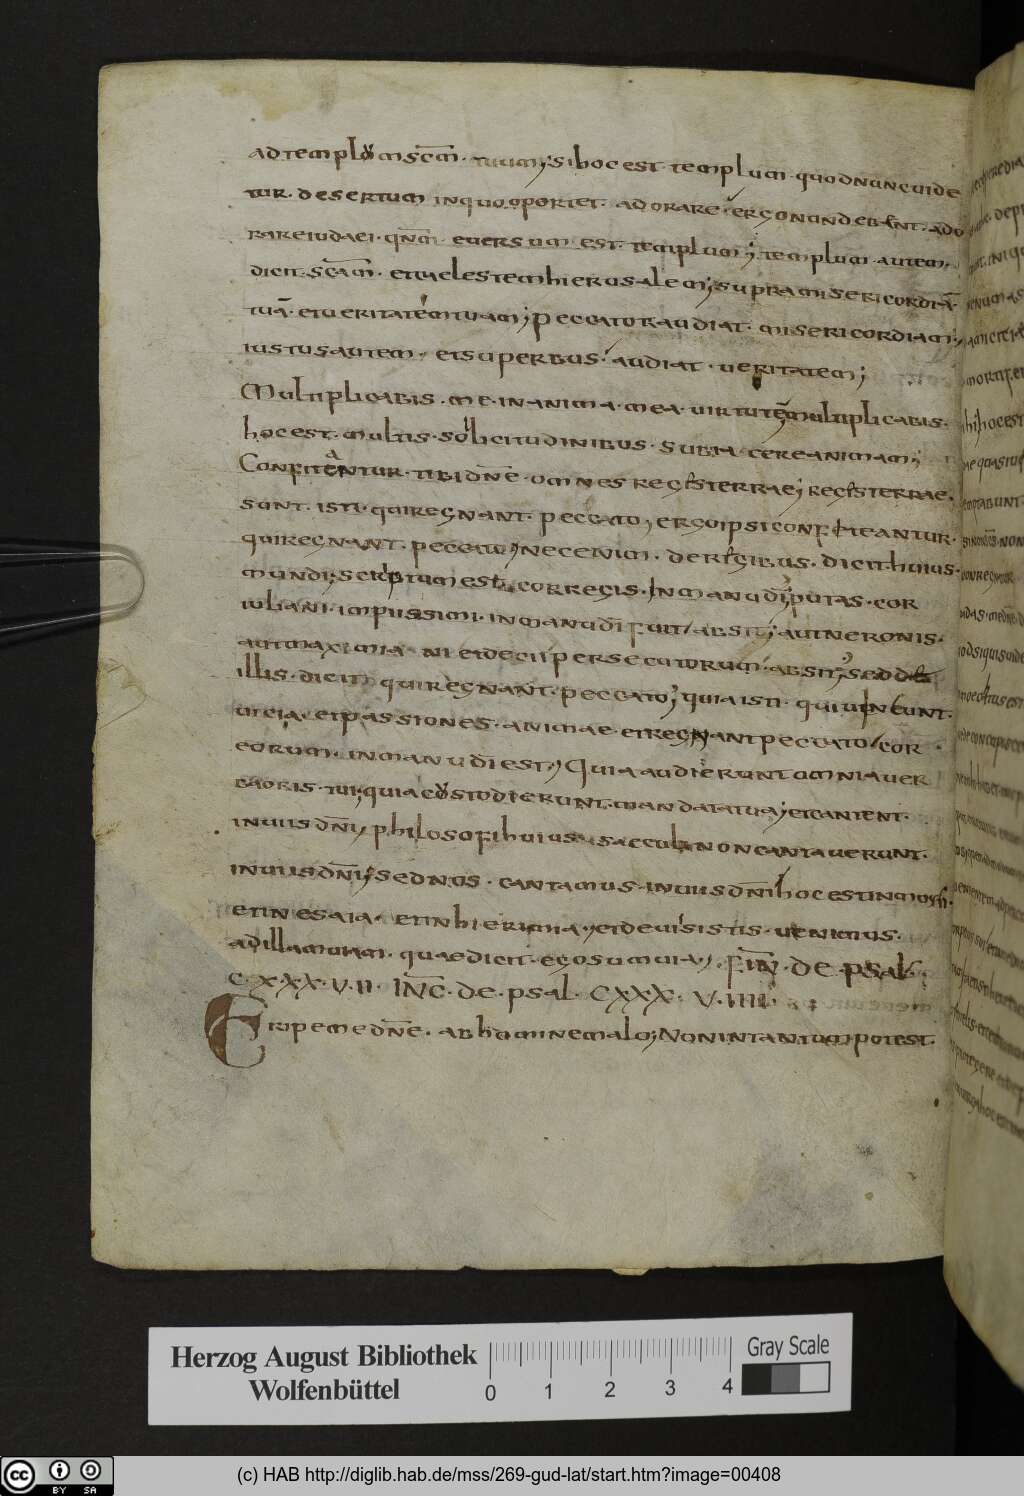 ad templum scm̄ tuum; si hoc est templum quod nunc uide
tur desertum in quo oportet adorare ergo nundebent ado
rare iudaei qn̄m euersum est templum; templum autem
dicit scām et caelestem hierusalem; supra misericordiā
tuā et ueritatem tuam; peccator audiat misericordiam;
iustus autem et superbus audiat ueritatem;
Multiplicabis me in anima mea uirtutē multiplicabis
hoc est multis sollicitudinibus subiacere animam;
Confiteantur tibi dn̄e omnes reges terrae; reges terrae
sunt isti qui regnant peccato, ergo ipsi confiteantur
qui regnant peccato; nec enim de regibus dicit huius
mundi; scriptum est cor regis in manu dī; putas cor
iuliani impiissimi in manu dī fuit absit; aut neronis
aut maximiani et decii persecutorum absit; sed de
illis dicit qui regnant peccato; quia isti qui uincunt
uitia et passiones animae et regnant peccato cor
eorum in manu dī est; Quia audierunt omnia uer
ba oris tui; quia custodierunt mandata tua; et cantent
in uiis dn̄i; philosofi huius saeculi non cantauerunt
in uiis dn̄i; sed nos cantamus in uiis dn̄i hoc est in moysi
et in esaia et in hieremia; et de uiis istis uenimus
ad illam uiam quae dicit ego sum uia; FIN̄ DE PSAL
C XXX VII INC̄ DE PSAL CXXX VIIII
Eripe me dn̄e ab homine malo; Non in tantum potest
Herzog August Bibliothek
Wolfenbüttel
0 1 2 3 4
Gray Scale
cc BY SA
(c) HAB http://diglib.hab.de/mss/269-gud-lat/start.htm?image=00408